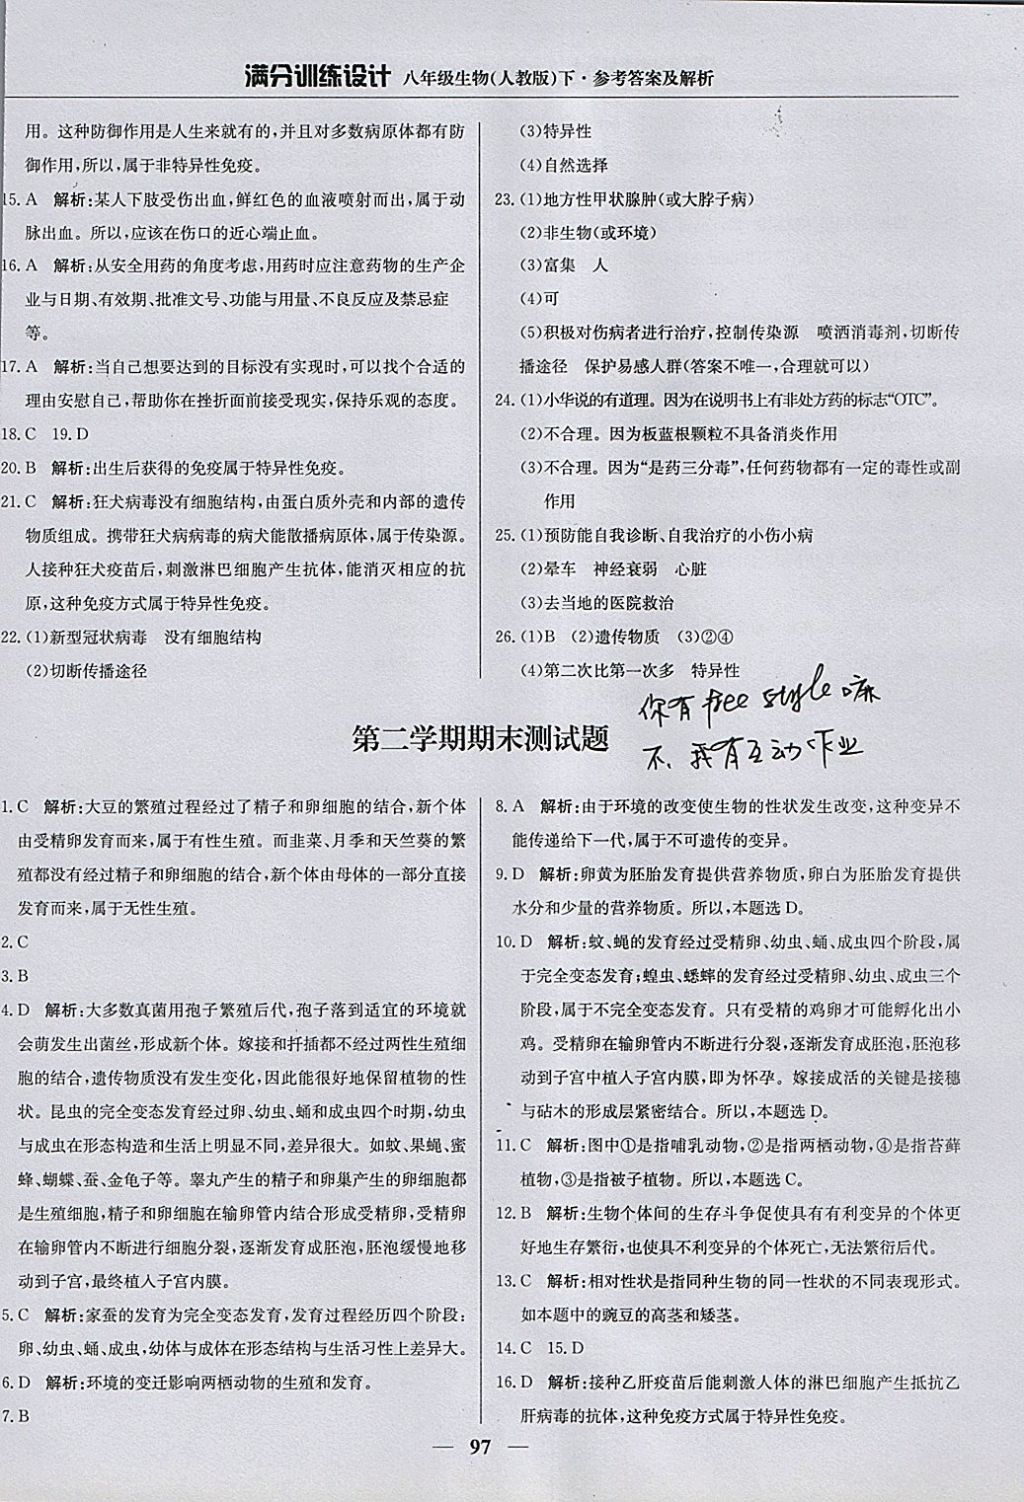 满分训练设计 八年级生物(人教版)下·参考答案及解析
用。这种防御作用是人生来就有的,并且对多数病原体都有防
御作用,所以,属于非特异性免疫。
15. A 解析:某人下肢受伤出血,鲜红色的血液喷射而出,属于动
脉出血。所以,应该在伤口的近心端止血。
16. A 解析:从安全用药的角度考虑,用药时应注意药物的生产企
业与日期、有效期、批准文号、功能与用量、不良反应及禁忌症
等。
17. A 解析:当自己想要达到的目标没有实现时,可以找个合适的
理由安慰自己,帮助你在挫折面前接受现实,保持乐观的态度。
18. C 19. D
20. B 解析:出生后获得的免疫属于特异性免疫。
21. C 解析:狂犬病毒没有细胞结构,由蛋白质外壳和内部的遗传
物质组成。携带狂犬病病毒的病犬能散播病原体,属于传染源。
人接种狂犬疫苗后,刺激淋巴细胞产生抗体,能消灭相应的抗
原,这种免疫方式属于特异性免疫。
22. (1)新型冠状病毒 没有细胞结构
(2)切断传播途径
(3)特异性
(4)自然选择
23. (1)地方性甲状腺肿(或大脖子病)
(2)非生物(或环境)
(3)富集 人
(4)可
(5)积极对伤病者进行治疗,控制传染源 喷洒消毒剂,切断传
播途径 保护易感人群(答案不唯一,合理就可以)
24. (1)小华说的有道理。因为在说明书上有非处方药的标志“OTC”。
(2)不合理。因为板蓝根颗粒不具备消炎作用
(3)不合理。因为“是药三分毒”,任何药物都有一定的毒性或副
作用
25. (1)预防能自我诊断、自我治疗的小伤小病
(2)晕车 神经衰弱 心脏
(3)去当地的医院救治
26. (1)B (2)遗传物质 (3)②④
(4)第二次比第一次多 特异性
你有free style嘛
不、我有互动作业
第二学期期末测试题
1. C 解析:大豆的繁殖过程经过了精子和卵细胞的结合,新个体
由受精卵发育而来,属于有性生殖。而韭菜、月季和天竺葵的繁
殖都没有经过精子和卵细胞的结合,新个体由母体的一部分直接
发育而来,属于无性生殖。
2. C
3. B
4. D 解析:大多数真菌用孢子繁殖后代,孢子落到适宜的环境就
会萌发生出菌丝,形成新个体。嫁接和扦插都不经过两性生殖细
胞的结合,遗传物质没有发生变化,因此能很好地保留植物的性
状。昆虫的完全变态发育经过卵、幼虫、蛹和成虫四个时期,幼虫
与成虫在形态构造和生活上明显不同,差异很大。如蚊、果蝇、蜜
蜂、蝴蝶、蚕、金龟子等。睾丸产生的精子和卵巢产生的卵细胞都
是生殖细胞,精子和卵细胞在输卵管内结合形成受精卵,受精卵
在输卵管内不断进行细胞分裂,逐渐发育成胚泡,胚泡缓慢地移
动到子宫,最终植入子宫内膜。
5. C 解析:家蚕的发育为完全变态发育,发育过程经历四个阶段:
卵、幼虫、蛹、成虫,幼体与成体在形态结构与生活习性上差异大。
6. D 解析:环境的变迁影响两栖动物的生殖和发育。
7. B
8. A 解析:由于环境的改变使生物的性状发生改变,这种变异不
能传递给下一代,属于不可遗传的变异。
9. D 解析:卵黄为胚胎发育提供营养物质,卵白为胚胎发育提供
水分和少量的营养物质。所以,本题选D。
10. D 解析:蚊、蝇的发育经过受精卵、幼虫、蛹、成虫四个阶段,属
于完全变态发育;蝗虫、蟋蟀的发育经过受精卵、幼虫、成虫三个
阶段,属于不完全变态发育。只有受精的鸡卵才可能孵化出小
鸡。受精卵在输卵管内不断进行分裂,逐渐发育成胚泡,胚泡移
动到子宫中植入子宫内膜,即为怀孕。嫁接成活的关键是接穗
与砧木的形成层紧密结合。所以,本题选D。
11. C 解析:图中①是指哺乳动物,②是指两栖动物,④是指苔藓
植物,③是指被子植物。所以,本题选C。
12. B 解析:生物个体间的生存斗争促使具有有利变异的个体更
好地生存繁衍,也使具不利变异的个体死亡,无法繁衍后代。
13. C 解析:相对性状是指同种生物的同一性状的不同表现形式。
如本题中的豌豆的高茎和矮茎。
14. C 15. D
16. D 解析:接种乙肝疫苗后能刺激人体的淋巴细胞产生抵抗乙
肝病毒的抗体,这种免疫方式属于特异性免疫。
— 97 —